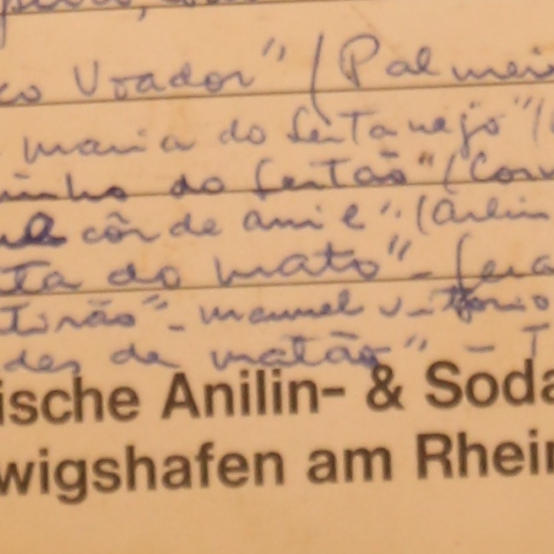 co Voador" / (Palmei
maria do Sertanejo" /
inho do Sertão" / (Con
côr de anil". (Arlin
ta do mato" -
tirão" - manuel vittorio
des de matão" - T
ische Anilin- & Soda
wigshafen am Rhein